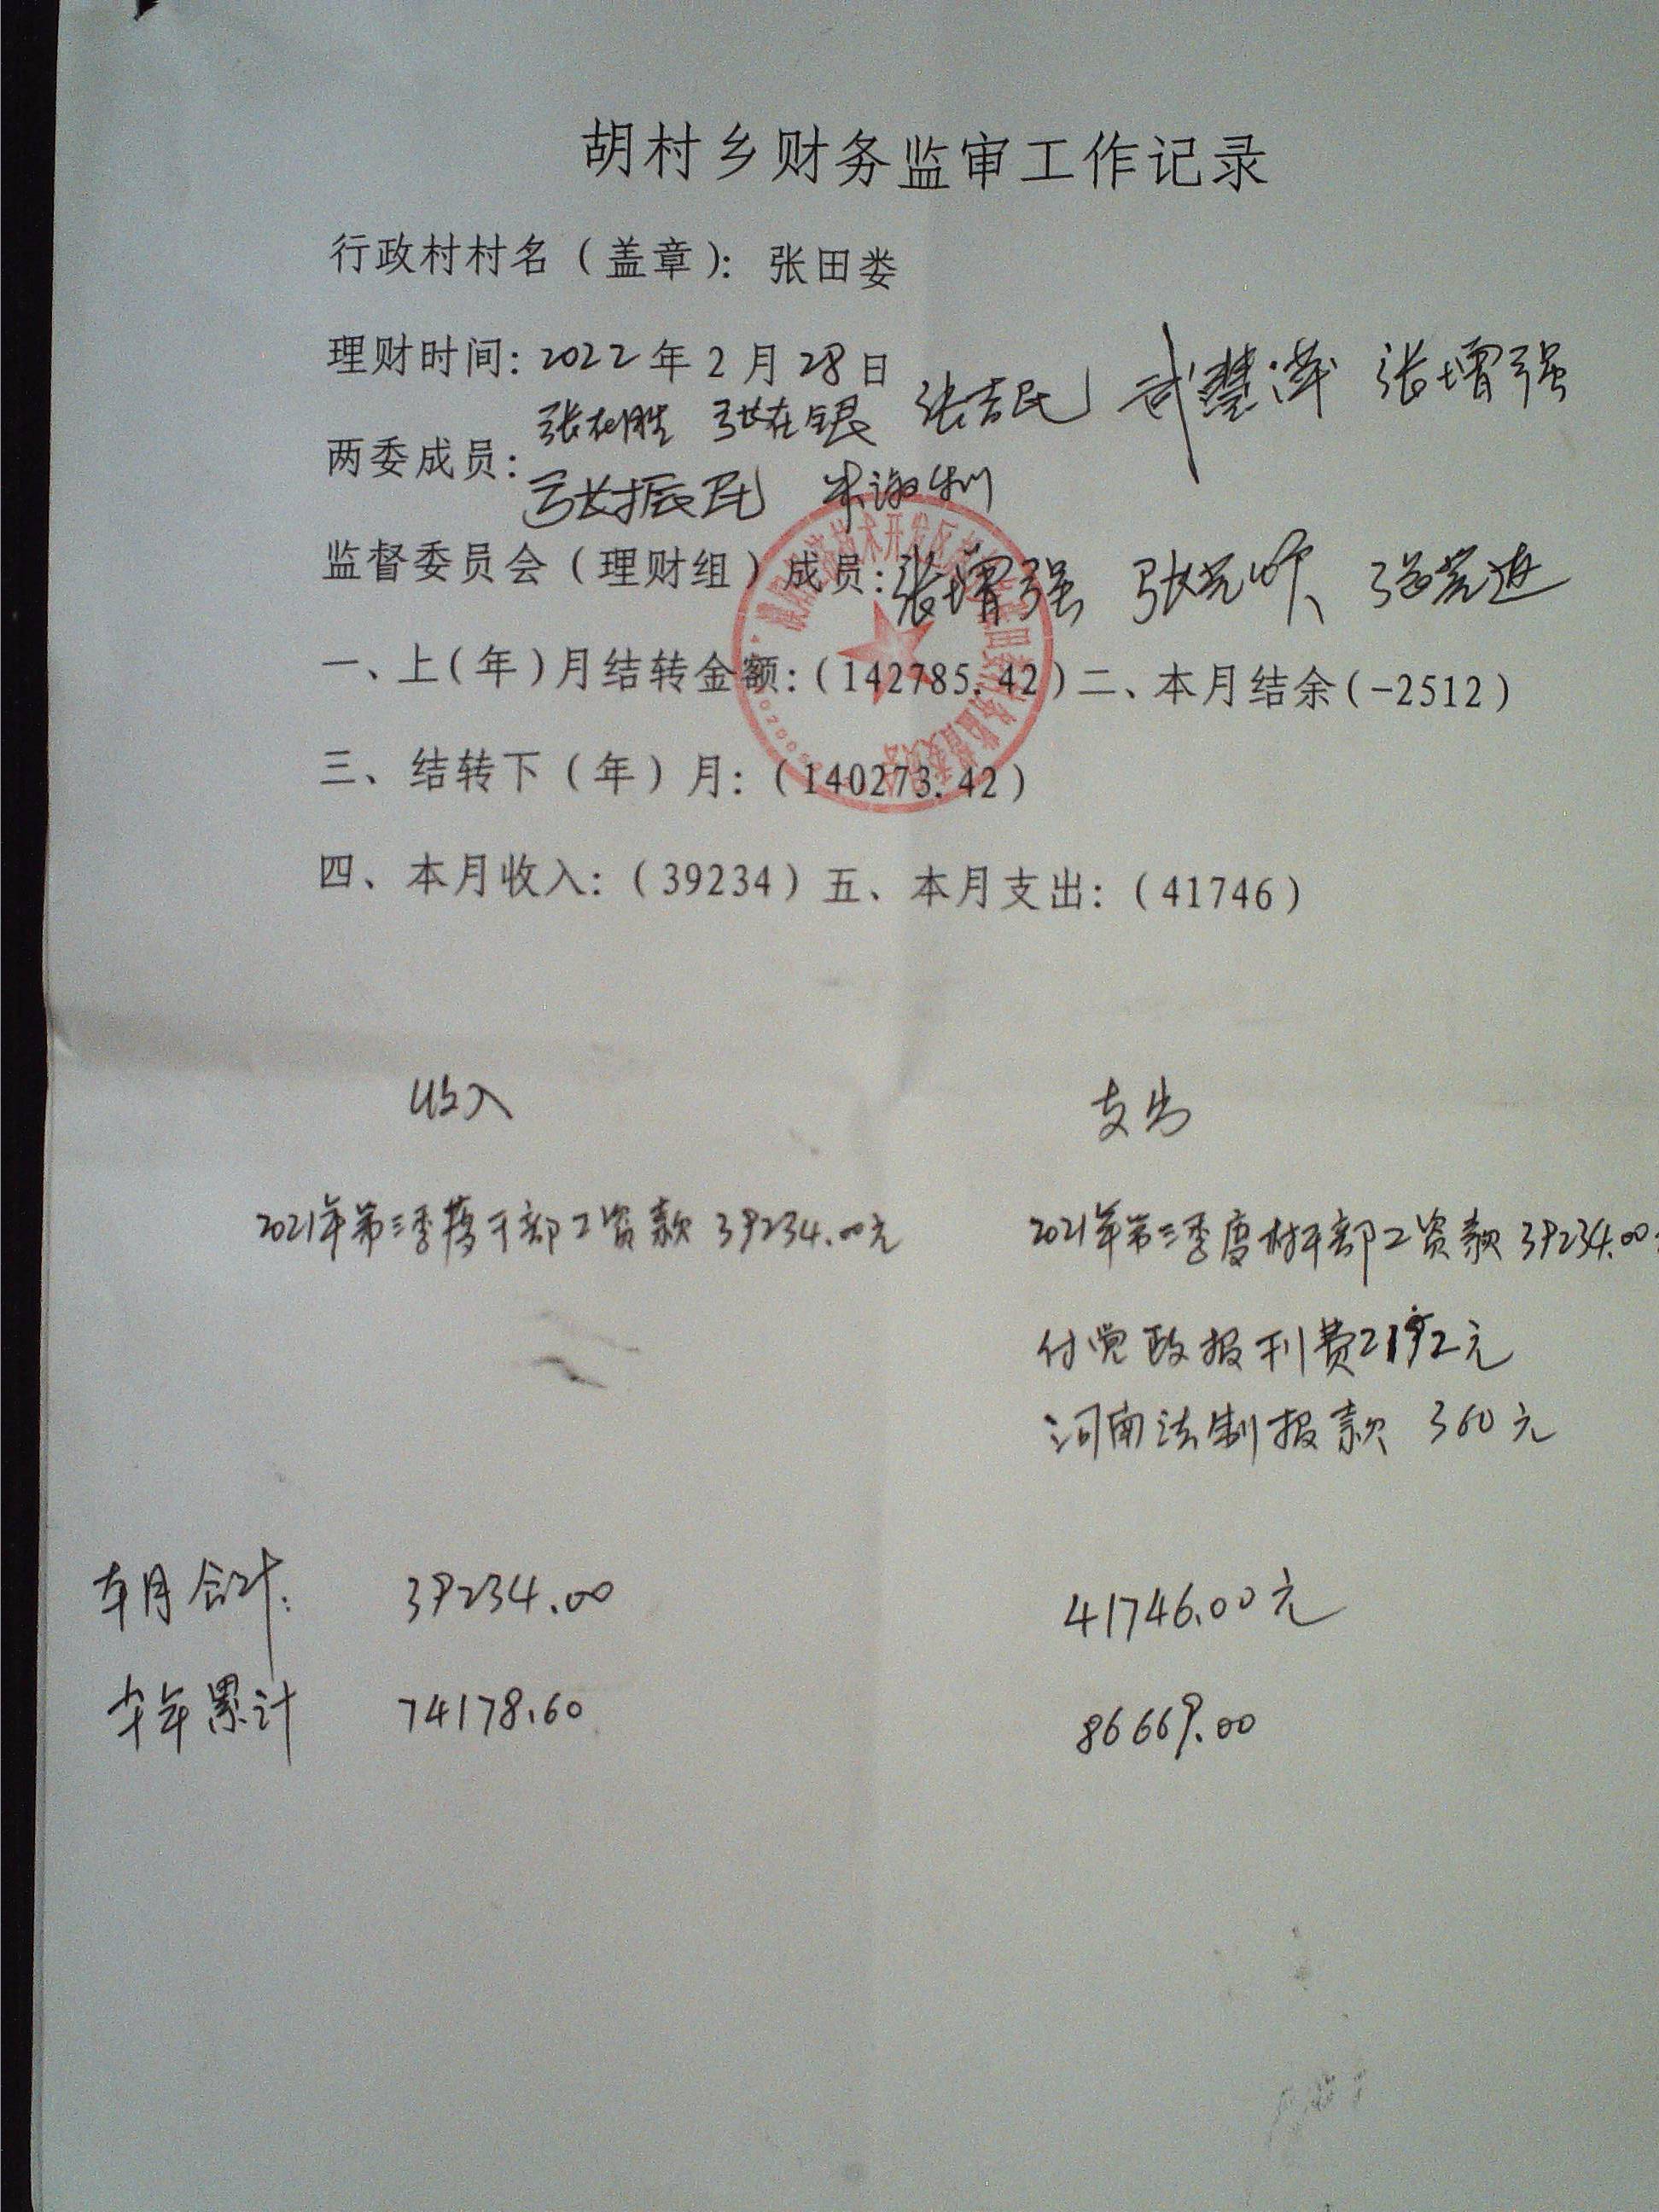 胡村乡财务监审工作记录
行政村村名（盖章）：张田娄
理财时间：2022年2月28日
张在胜 张在银 张吉民 武慧萍 张增强
两委成员：
张振民 朱淑
监督委员会（理财组）成员：张增强 张
一、上(年)月结转金额：(142785.42)二、本月结余(-2512)
三、结转下（年）月：(140273.42)
四、本月收入：(39234)五、本月支出：(41746)
收入 支出
2021年第三季度干部工资款 39234.00元 2021年第三季度村干部工资款 39234.00
付党政报刊费2192元
河南法制报款 360元
本月合计: 39234.00 41746.00元
本年累计 74178.60 86669.00